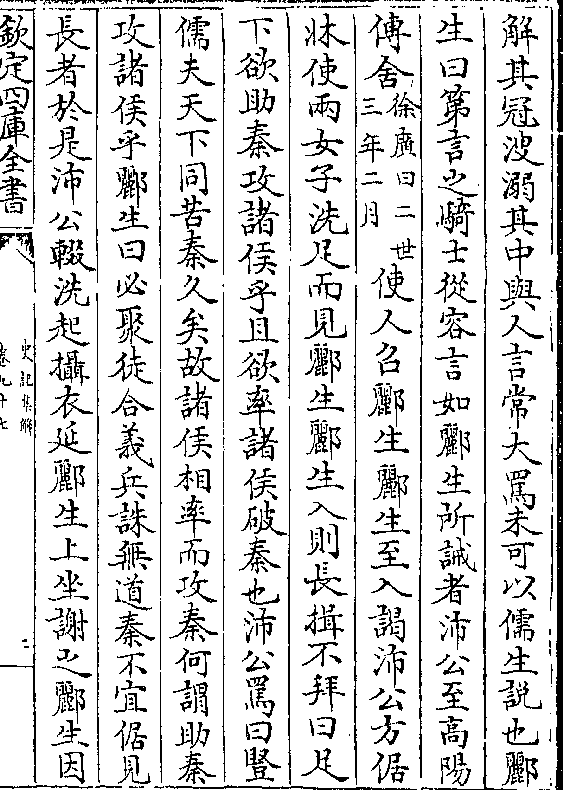 解其冠溲溺其中與人言常大罵未可以儒生說也酈
生曰第言之騎士從容言如酈生所誡者沛公至高陽
傳舍徐廣曰二世三年二月使人召酈生酈生至入謁沛公方倨
牀使兩女子洗足而見酈生酈生入則長揖不拜曰足
下欲助秦攻諸侯乎且欲率諸侯破秦也沛公罵曰豎
儒夫天下同苦秦久矣故諸侯相率而攻秦何謂助秦
攻諸侯乎酈生曰必聚徒合義兵誅無道秦不宜倨見
長者於是沛公輟洗起攝衣延酈生上坐謝之酈生因
欽定四庫全書
史記集解
卷九十七